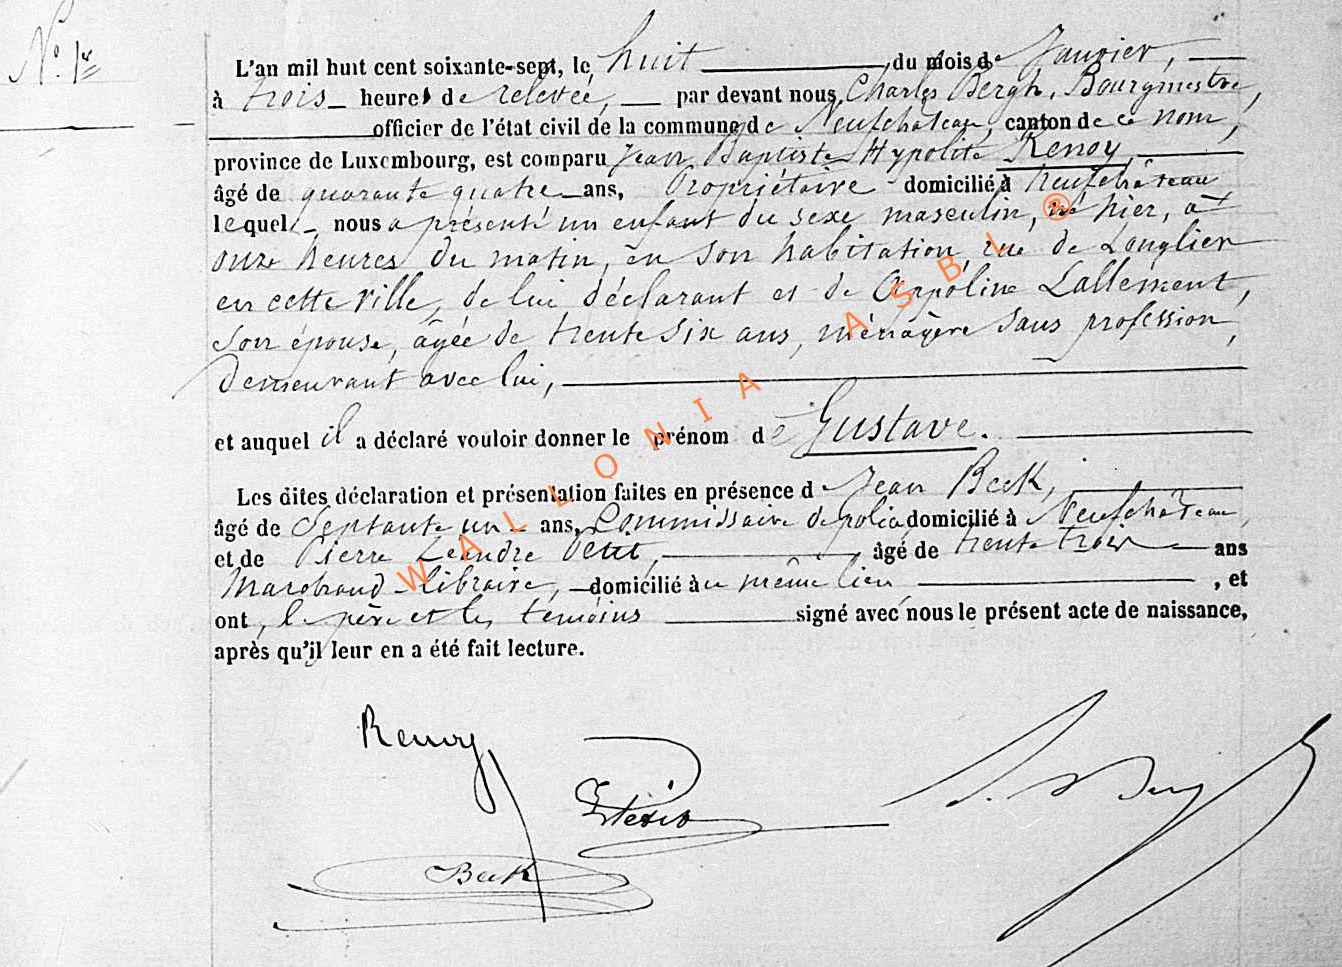 N° 1er
L'an mil huit cent soixante-sept, le huit du mois de Janvier,
à trois heures de relevée, par devant nous Charles Bergh, Bourgmestre,
officier de l'état civil de la commune de Neufchâteau, canton de ce nom,
province de Luxembourg, est comparu Jean Baptiste Hypolite Renoy
âgé de quarante quatre ans, Propriétaire domicilié à Neufchâteau
lequel nous a présenté un enfant du sexe masculin, né hier, à
onze heures du matin, en son habitation, rue de Longlier
en cette ville, de lui déclarant et de Appoline Lallement,
son épouse, âgée de trente six ans, ménagère sans profession,
demeurant avec lui,
et auquel il a déclaré vouloir donner le prénom de Gustave.
Les dites déclaration et présentation faites en présence de Jean Beck,
âgé de Septante un ans, Commissaire de police domicilié à Neufchâteau,
et de Pierre Léandre Petit, âgé de trente trois ans
Marchand Libraire, domicilié au même lieu, et
ont, le père et les témoins signé avec nous le présent acte de naissance,
après qu'il leur en a été fait lecture.
Renoy
Petit
Beck
WALLONIA ASBL ®